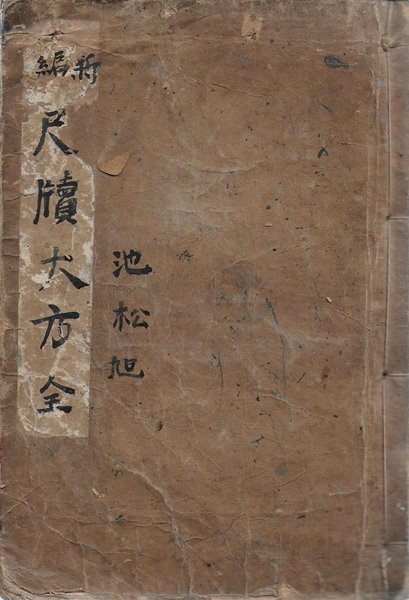 新編
尺牘大方全
池松旭